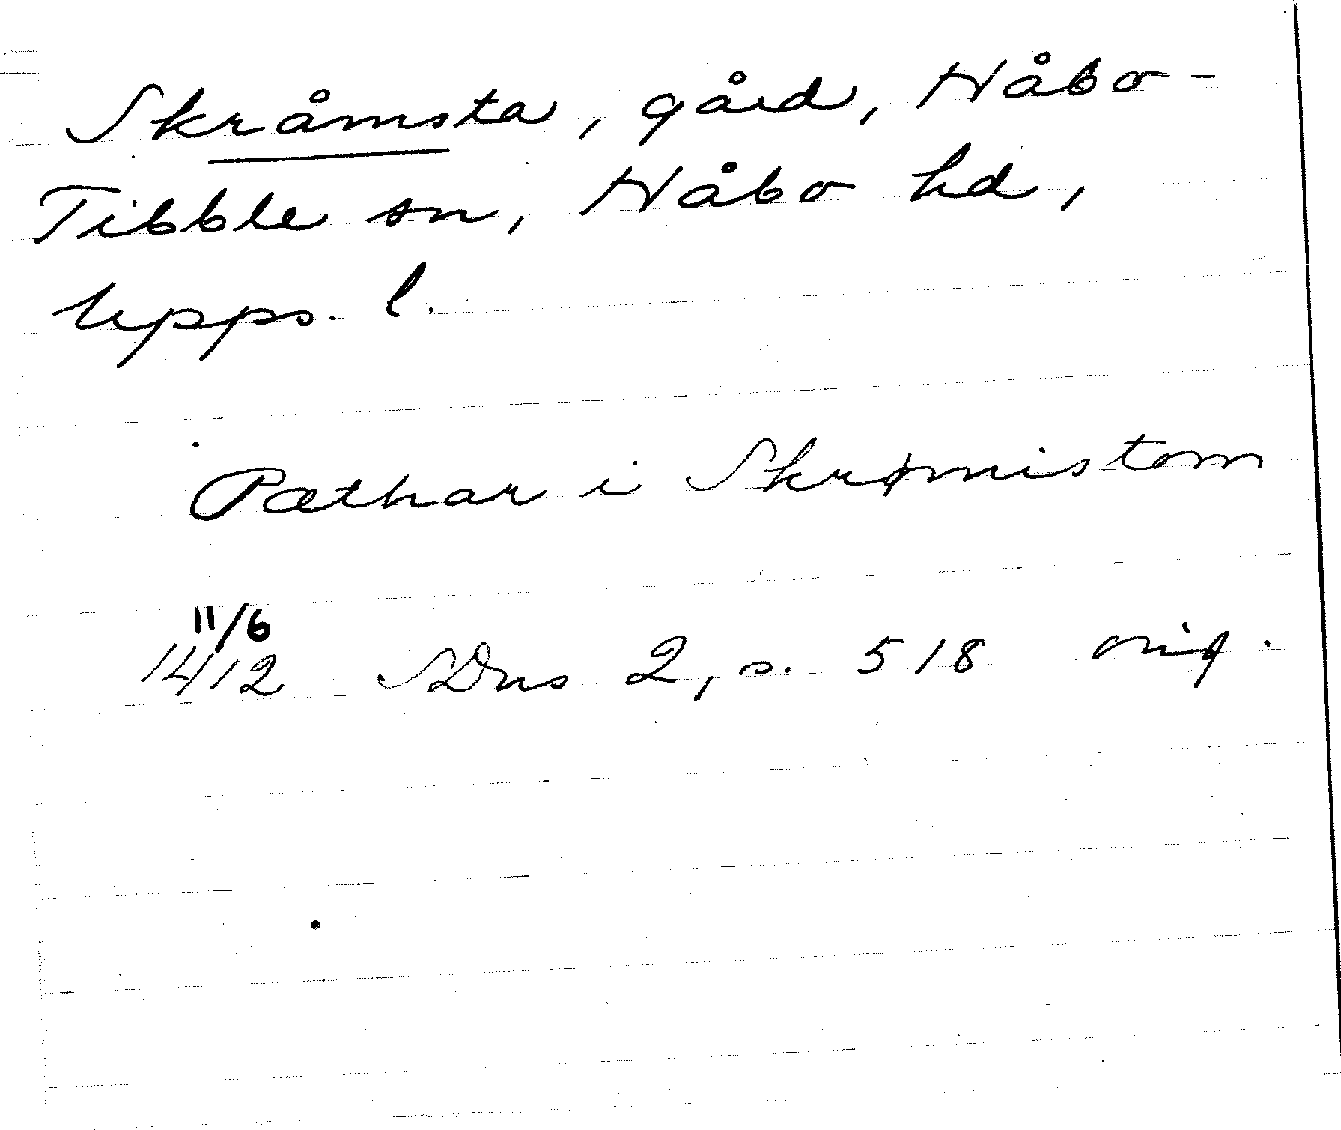 Skråmsta, gård, Håbo-
Tibble sn, Håbo hd,
Upps. l.
Pæthar i Skrømistom
11/6
1412 SDns 2, s. 518 orig.